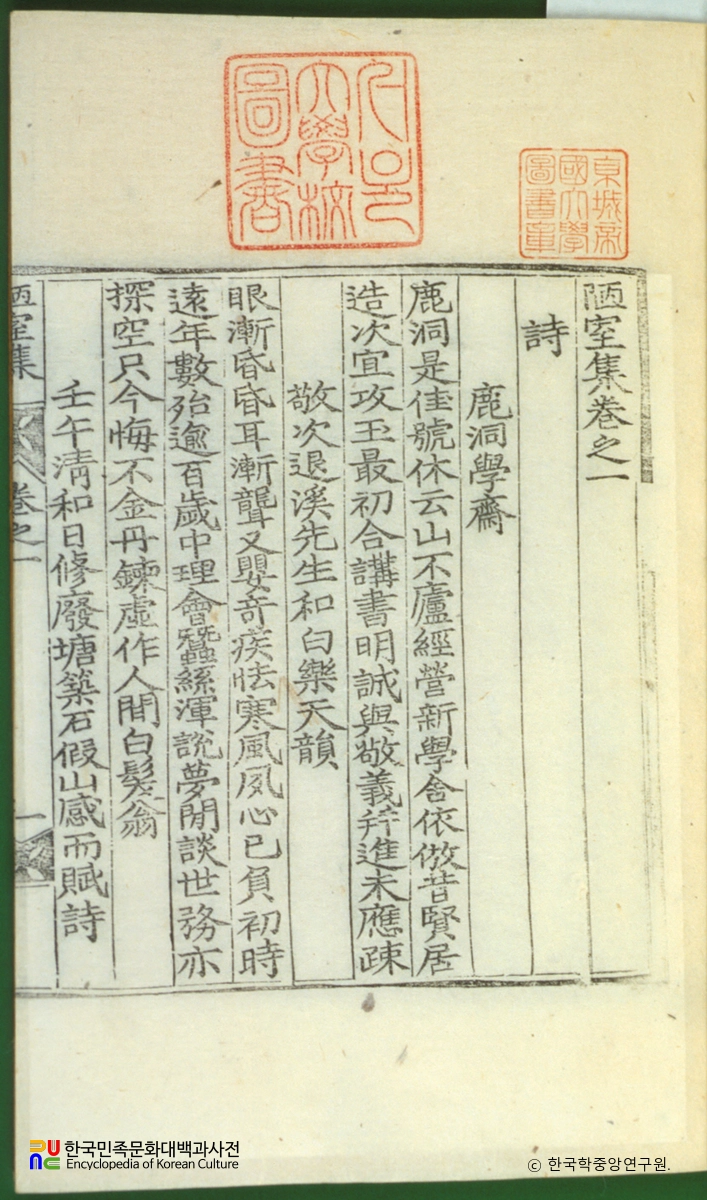 서울大學校圖書
京城帝國大學圖書章
陋室集卷之一
詩
鹿洞學齋
鹿洞是佳號休云山不廬經營新學舍依倣昔賢居
造次宜攻玉最初合講書明誠與敬義并進未應疎
敬次退溪先生和白樂天韻
眼漸昏昏耳漸聾又嬰奇疾怯寒風夙心已負初時
遠年數殆逾百歲中理會蠶絲渾說夢閒談世務亦
探空只今悔不金丹鍊虛作人間白髮翁
壬午淸和日修廢塘築石假山感而賦詩
陋室集 卷之一 一
한국민족문화대백과사전
Encyclopedia of Korean Culture
© 한국학중앙연구원.